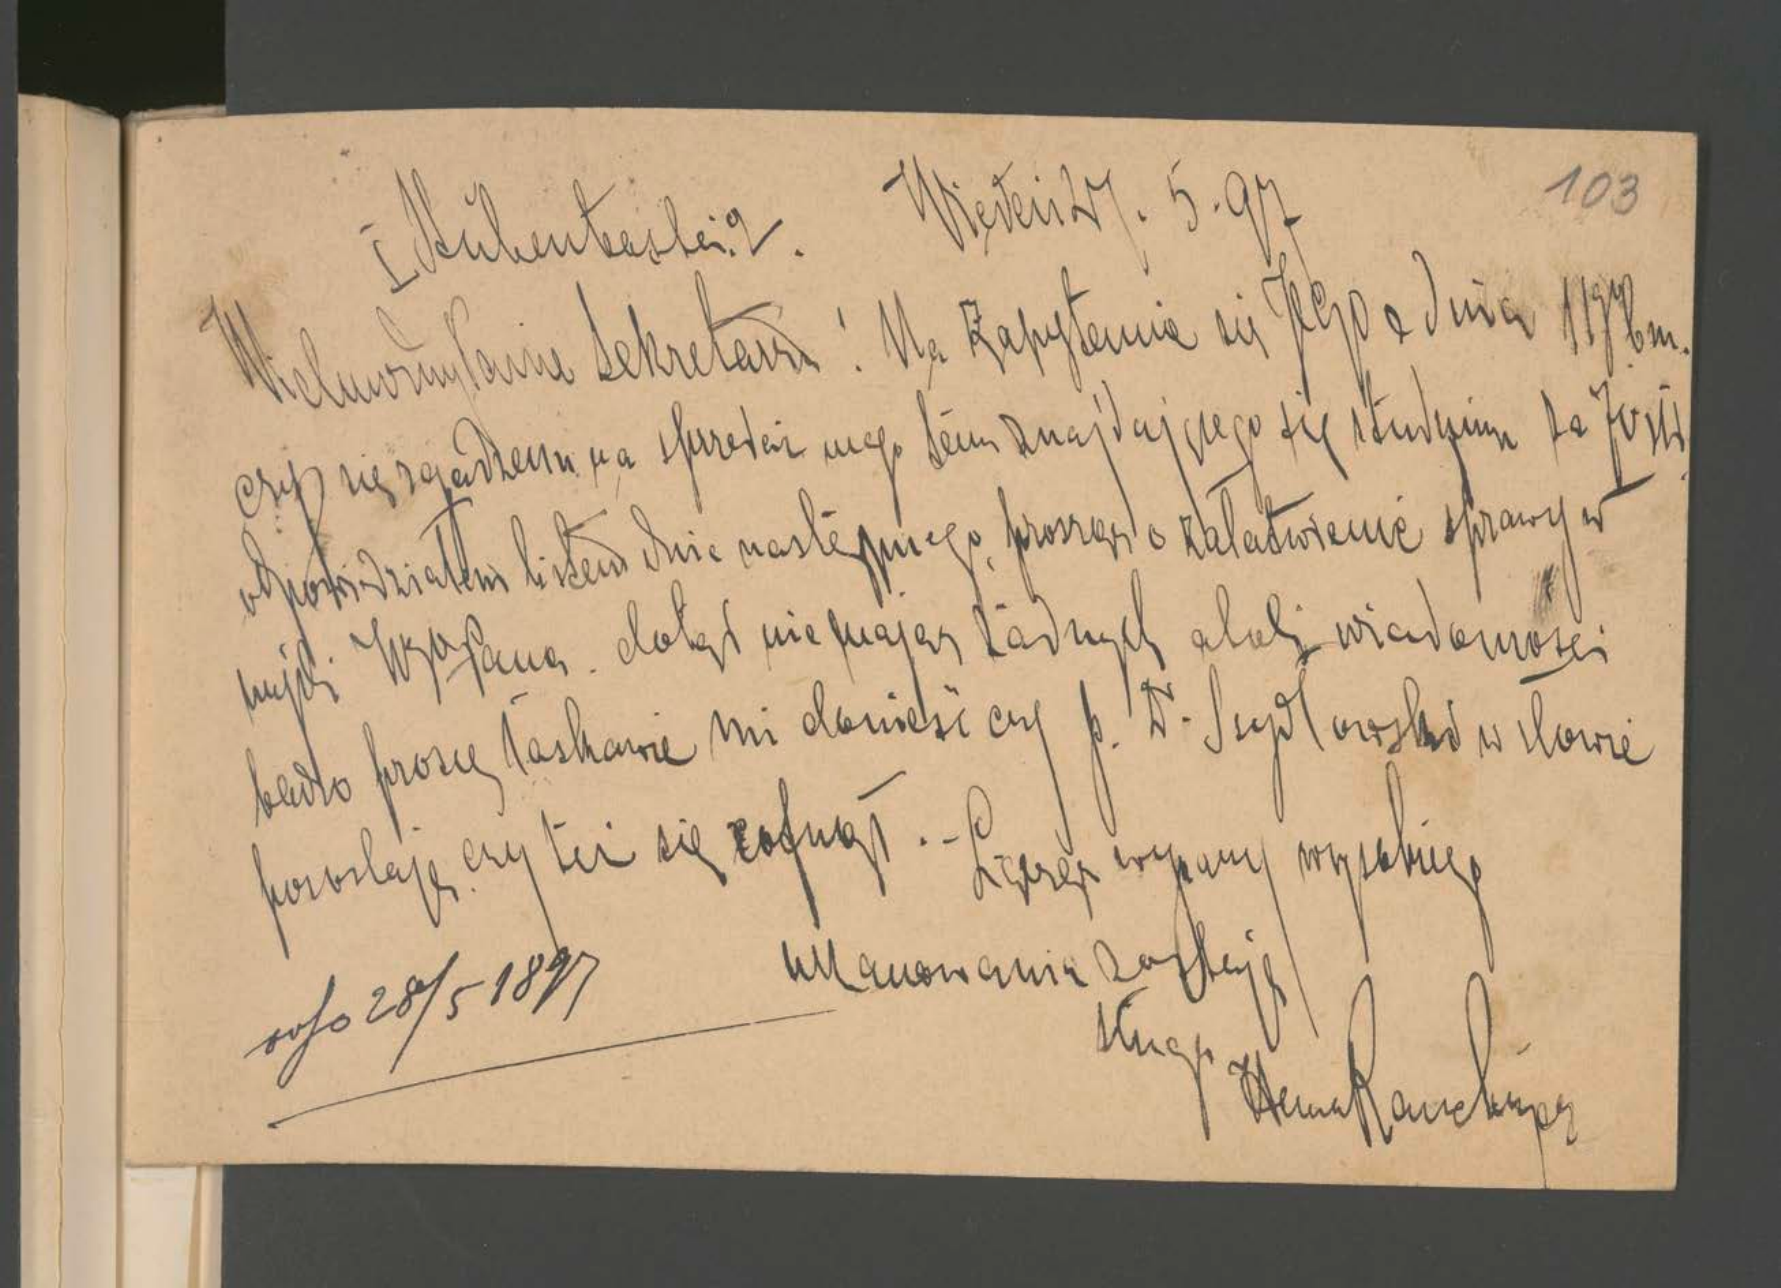 103
I Stubenbastei 2. Wiedeń 27. 5. 97
Wielmożny Panie Sekretarzu! Na zapytanie się z dnia 11 bm.
czyli się zgadzam na sprzedaż mego tam znajdającego się studyum za
odpowiedziałem listem dnia następnego, prosząc o załatwienie sprawy w
myśl Pana. dotąd nie mając żadnych wiadomości
bardzo proszę łaskawie mi donieść czy p. D. Szydłowski w słowie
pozostaje, czy też się cofnął. – Łącząc wyrazy wysokiego
szanowania zostaję
sługa
28/5 1897